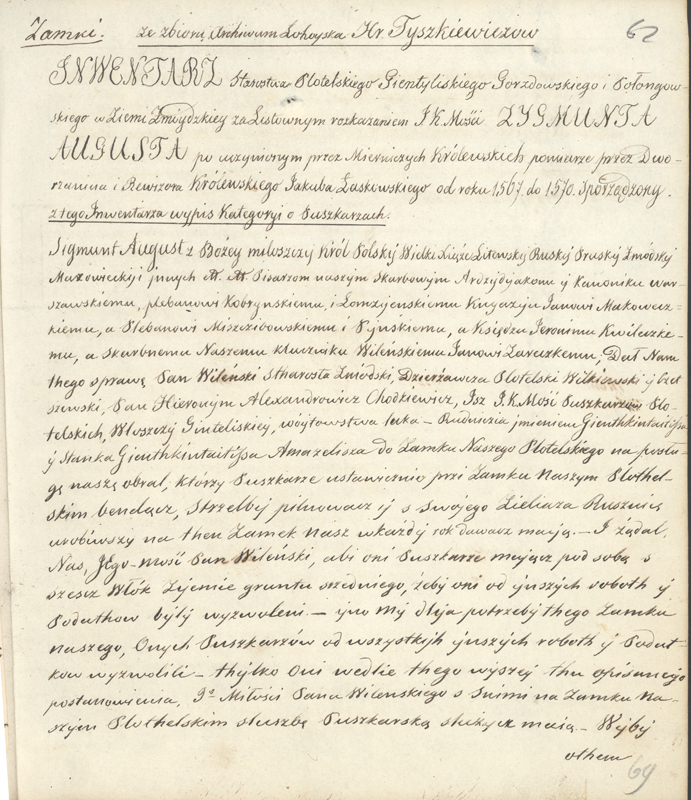 Zamki. ze zbioru Archiwum Łohojska Hr. Tyszkiewiczow
62
INWENTARZ Starostwa Płotelskiego Gientyliskiego Gorzdowskiego i Połongow-
skiego w Ziemi Żmujdzkiey za Listownym rozkazaniem J. K. Mości ZYGMUNTA
AUGUSTA po uczynionym przez Mierniczych Królewskich pomiarze przez Dwo-
rzanina i Rewizora Królewskiego Jakuba Łaskowskiego od roku 1567. do 1570. Sporządzony.
z tego Inwentarza wypis Kategoryi o Puszkarzach.
Sigmunt August z Bożey miłosczÿ Król Polskÿ Wielki Xiąże Litewskÿ Ruskÿ Pruskÿ Żmódskÿ
Mazowieckiÿ i jnnych Pisarzom naszÿm Skarbowÿm Ardzÿdÿakonu ÿ Kanoniku war-
szawskiemu, plebanowi Kobrynskiemu, i Łomzÿenskiemu Xięgzu Janowi Makowecz-
kiemu, a Plebanowi Miszczibowskiemu i Pÿnskiemu, a Księdzu Jeronimu Kwilecz̈ke-
mu, a skarbnemu Naszemu kluczniku Wileńskiemu Janowi Zareczkemu, Dał Nam
thego sprawę Pan Wileński Starosta Żmodski, Dzierżawcza Płotelski Wilkiewski ÿ
szewski, Pan Hieronÿm Alexandrowicz Chodkiewicz, Jsz J. K. Mość Puszkarzow Pło-
telskich, Włosczÿ Ginteliskieÿ, wojtowstwa Luka – Rudniczia jmieniem Gienthkintaitissa
ÿ Stanka Gienthkintaitissa Amazelisza do Zamku Naszego Płotelskiego na posłu-
gę naszą obrał, którzÿ Puszkarze ustawicznie przi Zamku Naszÿm Płothel-
skim bendącz, Strzelbÿ pilnowacz ÿ s swojego Żieliaza Rusznicę
urobiwszy na then Zamek nasz wkażdÿ rok dawacz mają. – I żądał
Nas, Jego-Mość Pan Wileński, abi oni Puszkarze mającz pod sobą s
szescz Włók Zÿemie gruntu szedniego, żebÿ oni od jnszÿch roboth ÿ
Podathow bÿlÿ wÿzwoleni – ÿno mÿ dlÿa potrzebÿ thego Zamku
naszego, Onych Puszkarzów od wszystkÿh ÿnszÿch roboth ÿ Podat-
kow wÿzwolili – thÿlko oni wedlie thego wÿszeÿ thu opisanego
postanowienia, Jº Miłości Pana Wilenskiego s Snimi na Zamku Na-
szÿm Płothelskim służbę Puszkarską służycz mają. – Wÿbÿ
othem
69